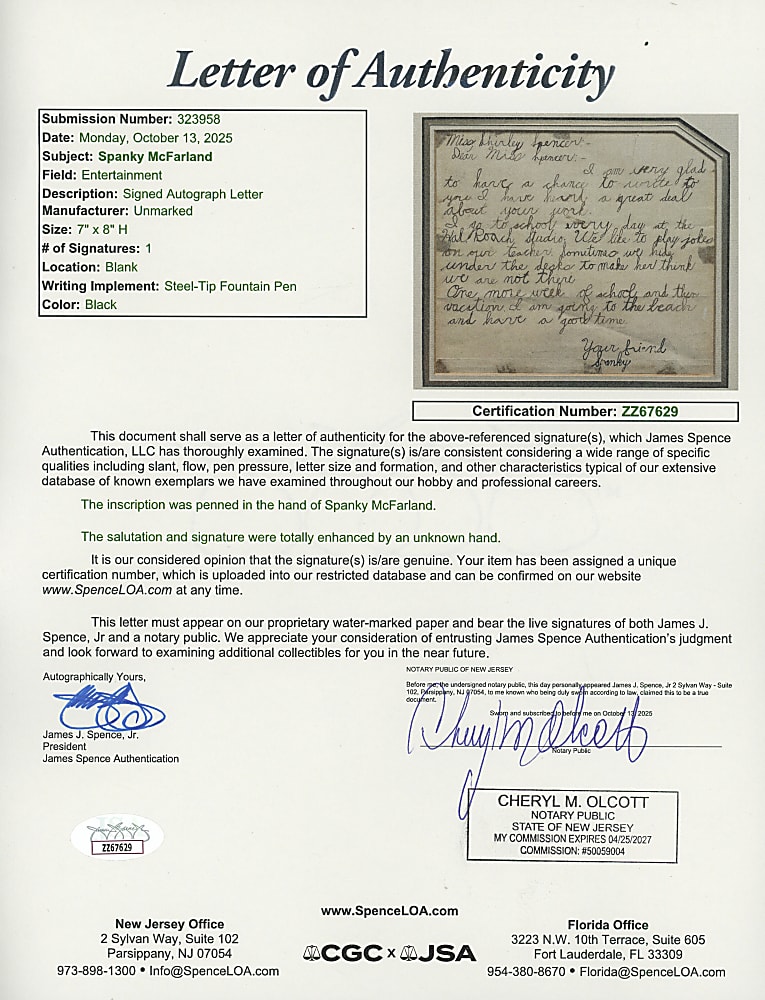 Letter of Authenticity
Submission Number: 323958
Date: Monday, October 13, 2025
Subject: Spanky McFarland
Field: Entertainment
Description: Signed Autograph Letter
Manufacturer: Unmarked
Size: 7" x 8" H
# of Signatures: 1
Location: Blank
Writing Implement: Steel-Tip Fountain Pen
Color: Black
Miss Shirley Spencer:-
Dear Miss Spencer:-
I am very glad
to have a chance to write to
you I have heard a great deal
about your work.
I go to school every day at the
Hal Roach Studio. We like to play jokes
on our teacher. Sometimes we hide
under the desks to make her think
we are not there
One more week of school and then
vacation. I am going to the beach
and have a good time.
Your friend
Spanky
Certification Number: ZZ67629
This document shall serve as a letter of authenticity for the above-referenced signature(s), which James Spence
Authentication, LLC has thoroughly examined. The signature(s) is/are consistent considering a wide range of specific
qualities including slant, flow, pen pressure, letter size and formation, and other characteristics typical of our extensive
database of known exemplars we have examined throughout our hobby and professional careers.
The inscription was penned in the hand of Spanky McFarland.
The salutation and signature were totally enhanced by an unknown hand.
It is our considered opinion that the signature(s) is/are genuine. Your item has been assigned a unique
certification number, which is uploaded into our restricted database and can be confirmed on our website
www.SpenceLOA.com at any time.
This letter must appear on our proprietary water-marked paper and bear the live signatures of both James J.
Spence, Jr and a notary public. We appreciate your consideration of entrusting James Spence Authentication's judgment
and look forward to examining additional collectibles for you in the near future.
Autographically Yours,
James J. Spence, Jr.
President
James Spence Authentication
NOTARY PUBLIC OF NEW JERSEY
Before me, the undersigned notary public, this day personally appeared James J. Spence, Jr 2 Sylvan Way - Suite
102, Parsippany, NJ 07054, to me known who being duly sworn according to law, claimed this to be a true
document.
Sworn and subscribed to before me on October 13, 2025
Cheryl M Olcott
Notary Public
CHERYL M. OLCOTT
NOTARY PUBLIC
STATE OF NEW JERSEY
MY COMMISSION EXPIRES 04/25/2027
COMMISSION: #50059004
ZZ67629
www.SpenceLOA.com
New Jersey Office
2 Sylvan Way, Suite 102
Parsippany, NJ 07054
973-898-1300 • Info@SpenceLOA.com
CGC x JSA
Florida Office
3223 N.W. 10th Terrace, Suite 605
Fort Lauderdale, FL 33309
954-380-8670 • Florida@SpenceLOA.com